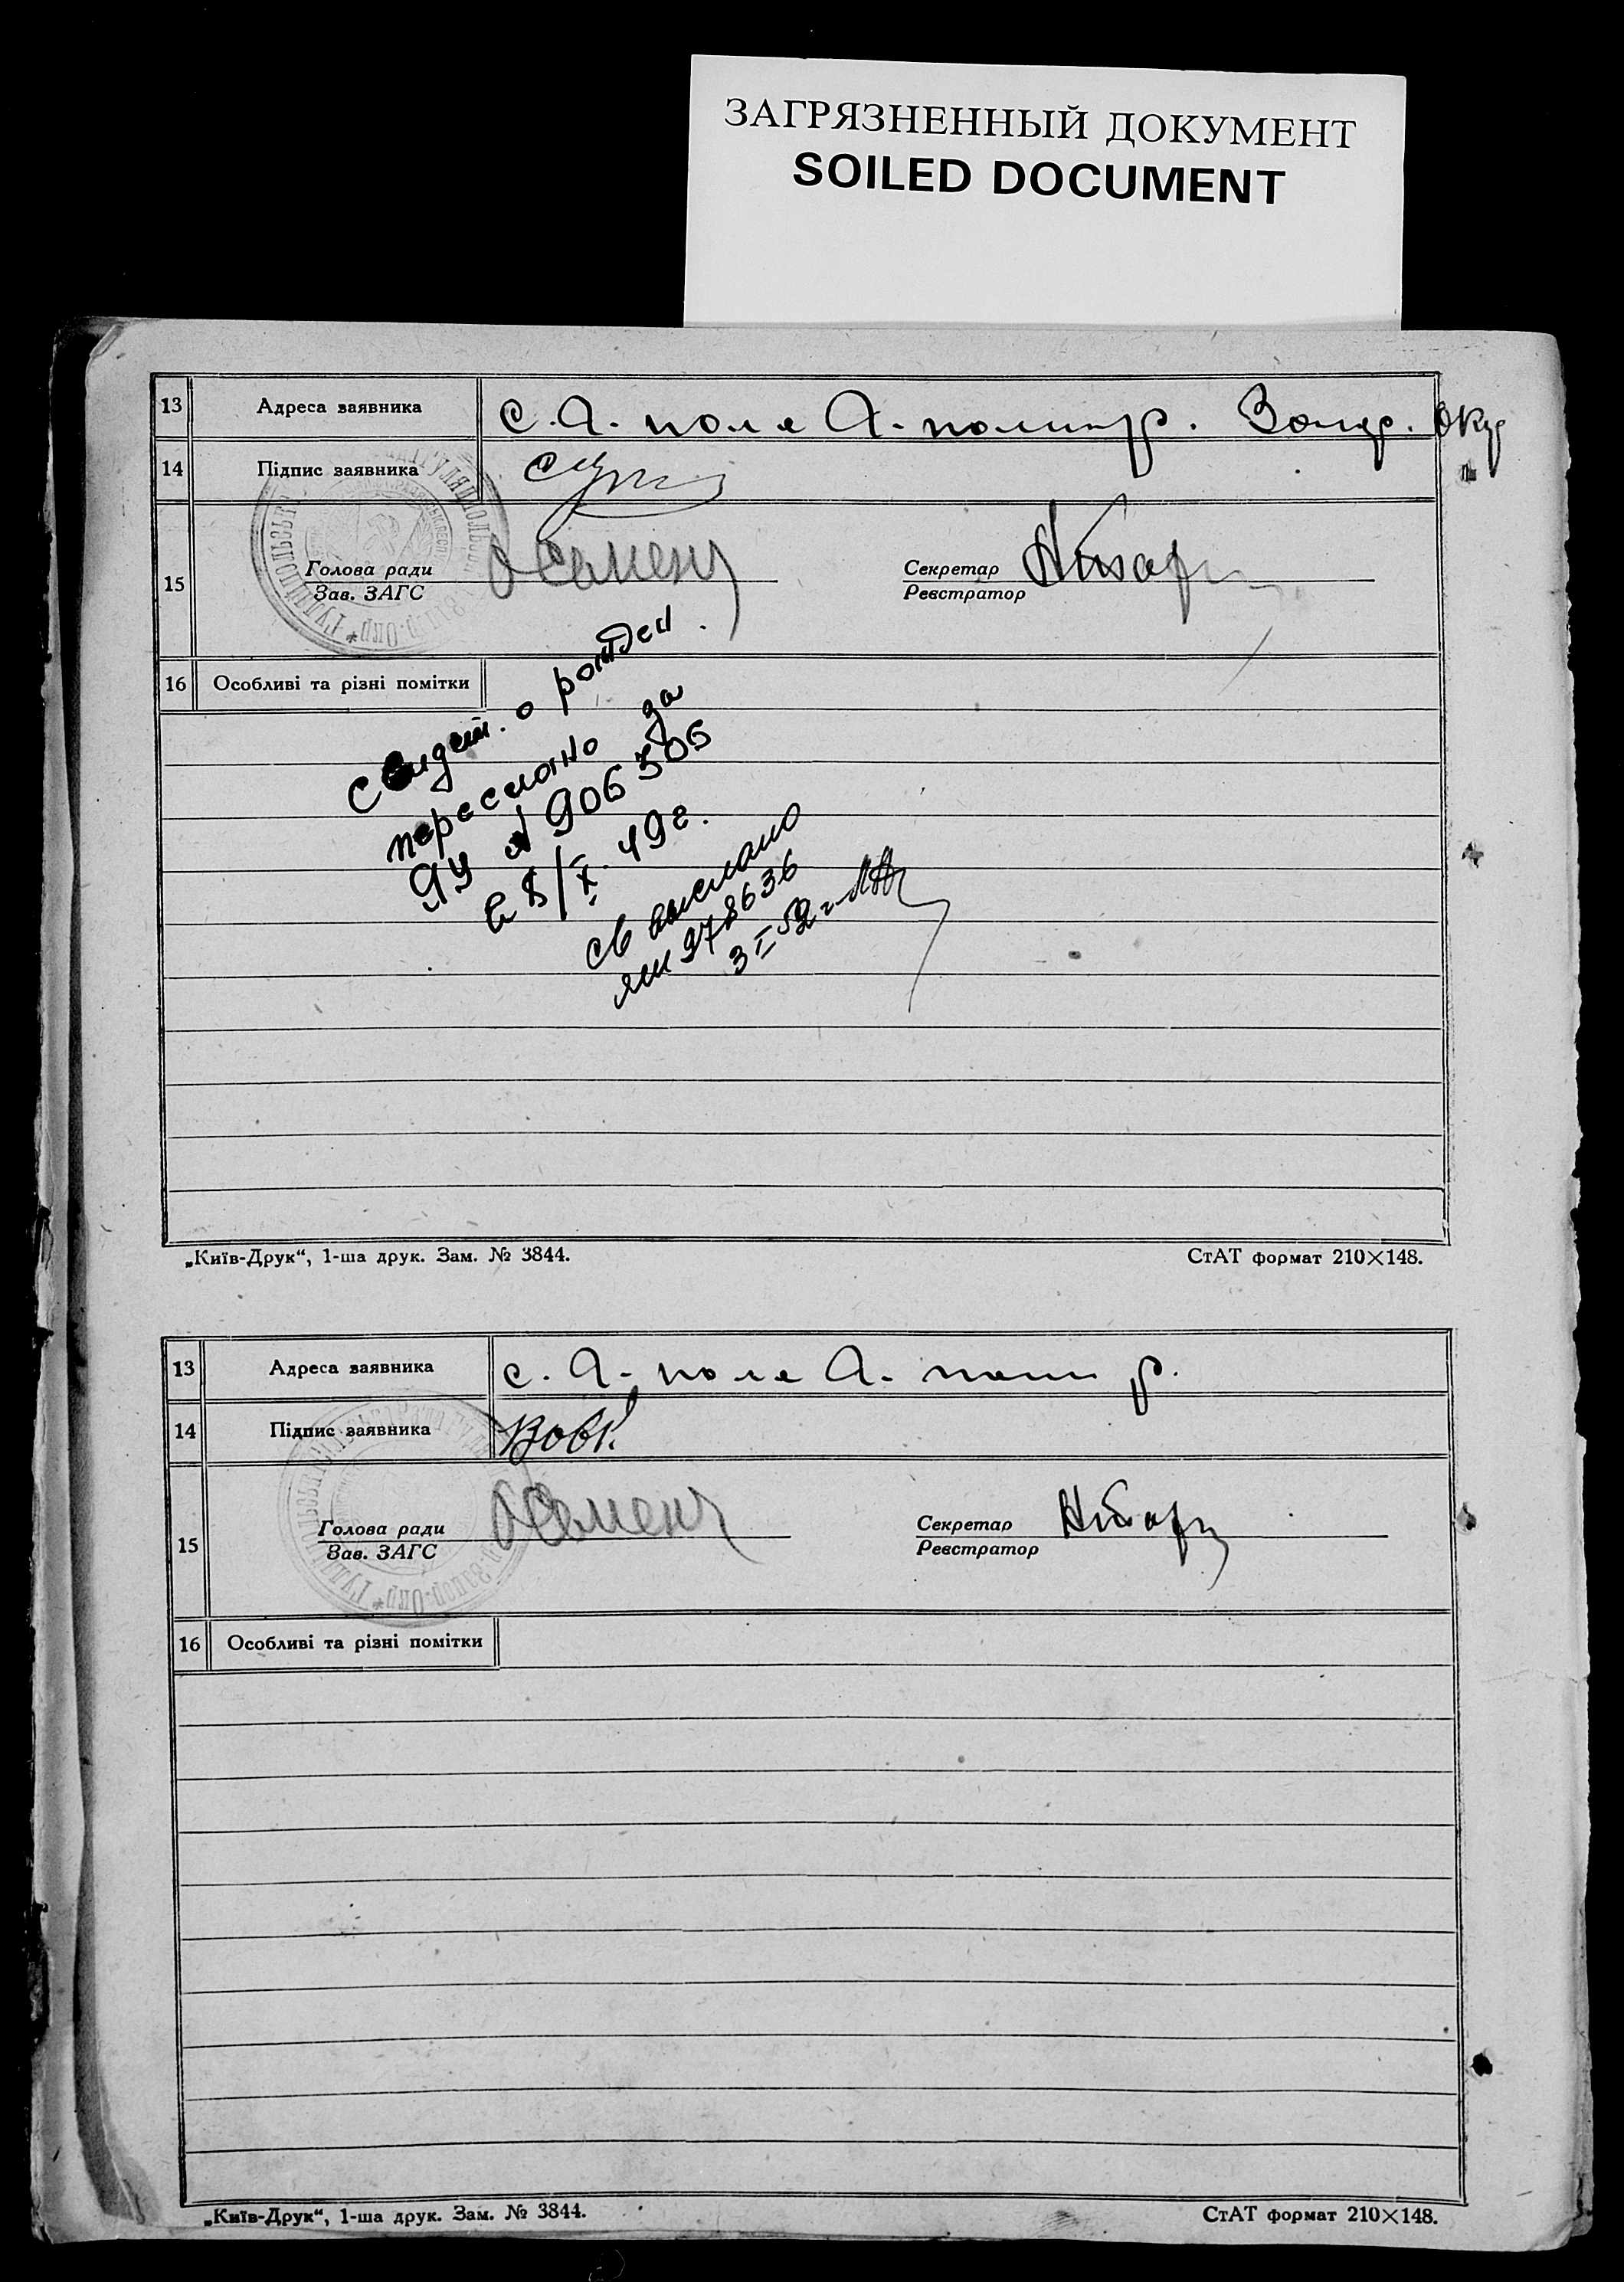 ЗАГРЯЗНЕННЫЙ ДОКУМЕНТ
SOILED DOCUMENT
13 Адреса заявника с. Г. поле Г. польс р. Запор. окр
14 Підпис заявника
15 Голова ради Секретар
Зав. ЗАГС Реєстратор
16 Особливі та різні помітки
Свидет. о рожден.
переслано за
ЯУ № 906306
в 8/X. 49г.
св выслано
яш 978636
3 I 52 г.
„Київ-Друк“, 1-ша друк. Зам. № 3844. СтАТ формат 210×148.
13 Адреса заявника с. Г. поле Г. поль р.
14 Підпис заявника Вовк
15 Голова ради Секретар
Зав. ЗАГС Реєстратор
16 Особливі та різні помітки
„Київ-Друк“, 1-ша друк. Зам. № 3844. СтАТ формат 210×148.